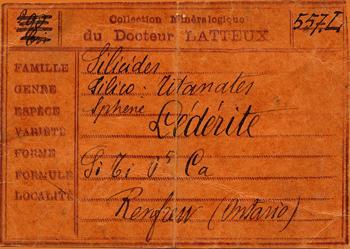 Collection Minéralogique
557.I
du Docteur LATTEUX
FAMILLE Silicides
GENRE Silico-Titanates
ESPÈCE Sphene
VARIÉTÉ Lédérite
FORME
FORMULE Si Ti O5 Ca
LOCALITÉ Renfrew (Ontario)